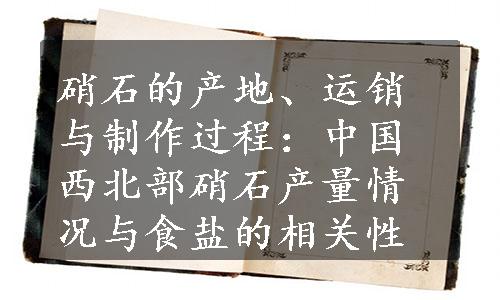 硝石的产地、运销
与制作过程：中国
西北部硝石产量情
况与食盐的相关性